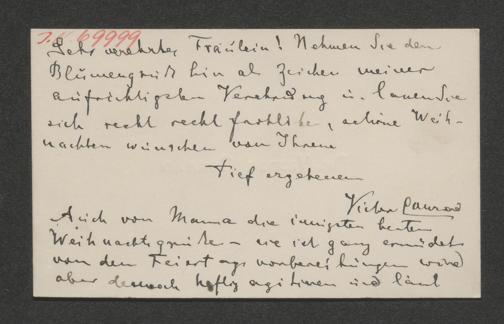 J.N. 69999
Sehr verehrtes Fräulein! Nehmen Sie den
Blumengruß hin als Zeichen meiner
aufrichtigsten Verehrung u. lassen Sie
sich recht recht fröhliche, schöne Weih-
nachten wünschen von Ihrem
tief ergebenen
Victor
Auch von Mama die innigsten besten
Weihnachtsgrüße – sie ist ganz ermüdet
von den Feiertagsvorbereitungen wird
aber dennoch heftig agitieren und läuft